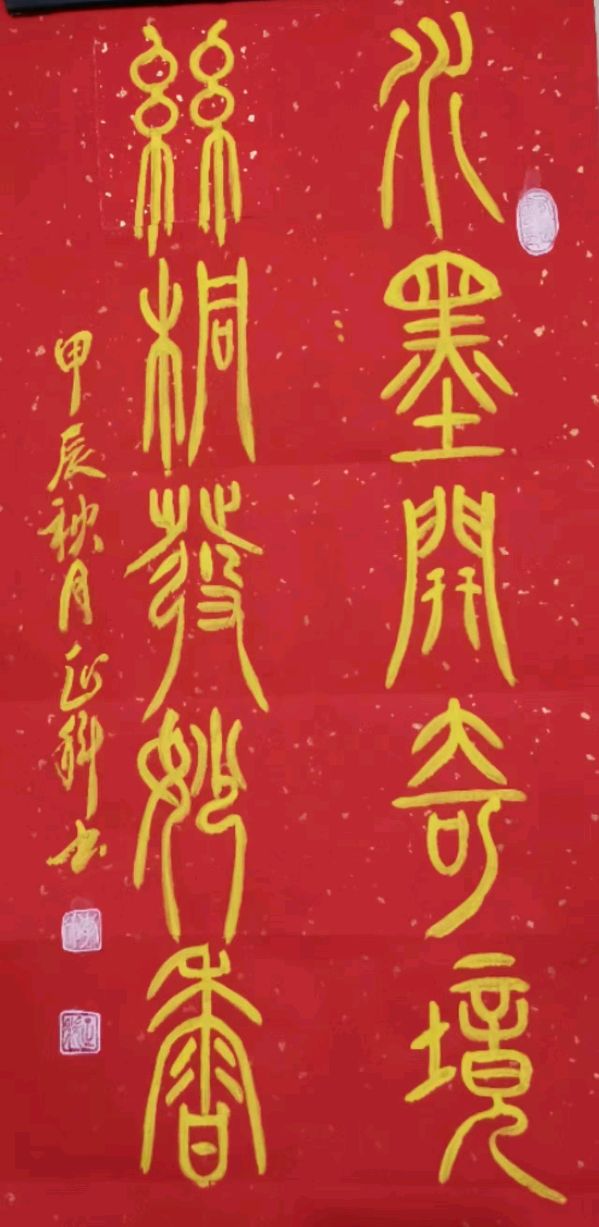 水墨開奇境
絲桐發妙香
甲辰秋月科书